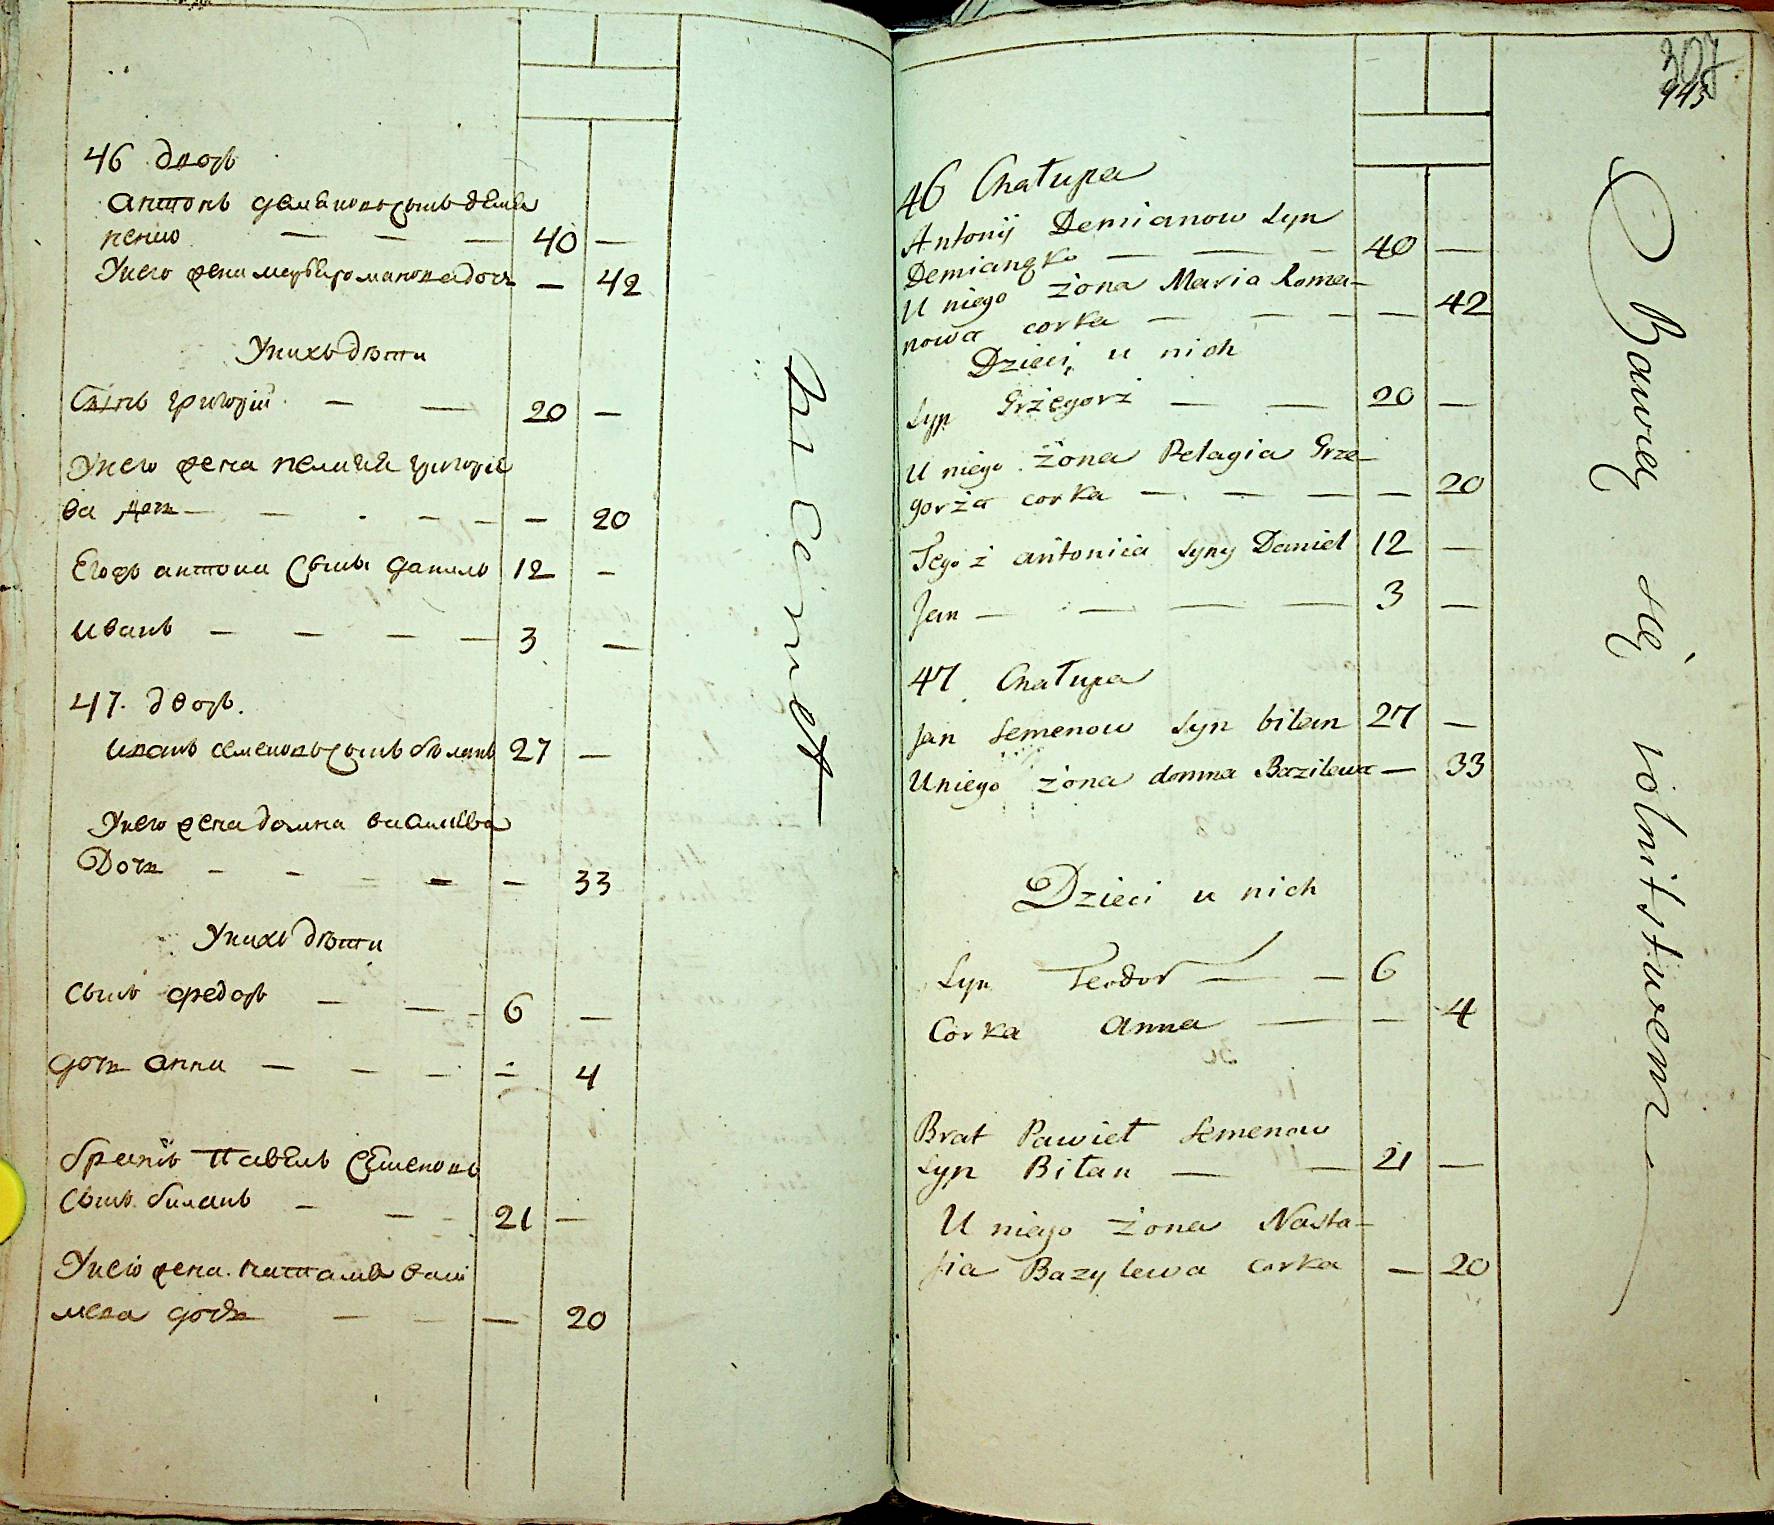 46 дворъ
антонъ демяновъ сынъ демя
ненко — — — 40 —
Унего жена марья романова дочь — 42
Унихъ дѣти
Сынъ григорій — — 20 —
Унего жена пелагия григорїе
ва дочь — — — — — 20
Егожъ антона сыны данило 12 —
иванъ — — — — 3 —
47. дворъ.
иванъ семеновъ сынъ бѣланъ 27 —
Унего жена домна василева
Дочь — — — — — 33
Унихъ дѣти
сынъ федоръ — — 6 —
дочь анна — — — — 4
братъ павелъ семеновъ
сынъ биланъ — — — 21 —
Унего жена. васі
лева дочь — — — 20
307
443
46 Chałupa
Antonij Demianow Syn
Demianęko — — — 40 —
U niego żona Maria Roma-
nowa corka — — — — 42
Dzieci u nich
Syn Grżegorż — — 20 —
U niego żona Pelagia Grze-
gorża corka — — — — 20
Tego ż antonia syny Daniel 12 —
Jan — — — — 3 —
47 Chałupa
Jan Semenow Syn bilan 27 —
Uniego żona domna Bazilewa — 33
Dzieci u nich
Syn Teodor — — 6
Corka anna — — 4
Brat Pawieł Semenow
Syn Biłan — — 21 —
U niego żona Nasta-
sia Bazylewa corka — 20
Bawią się rolnitstwem